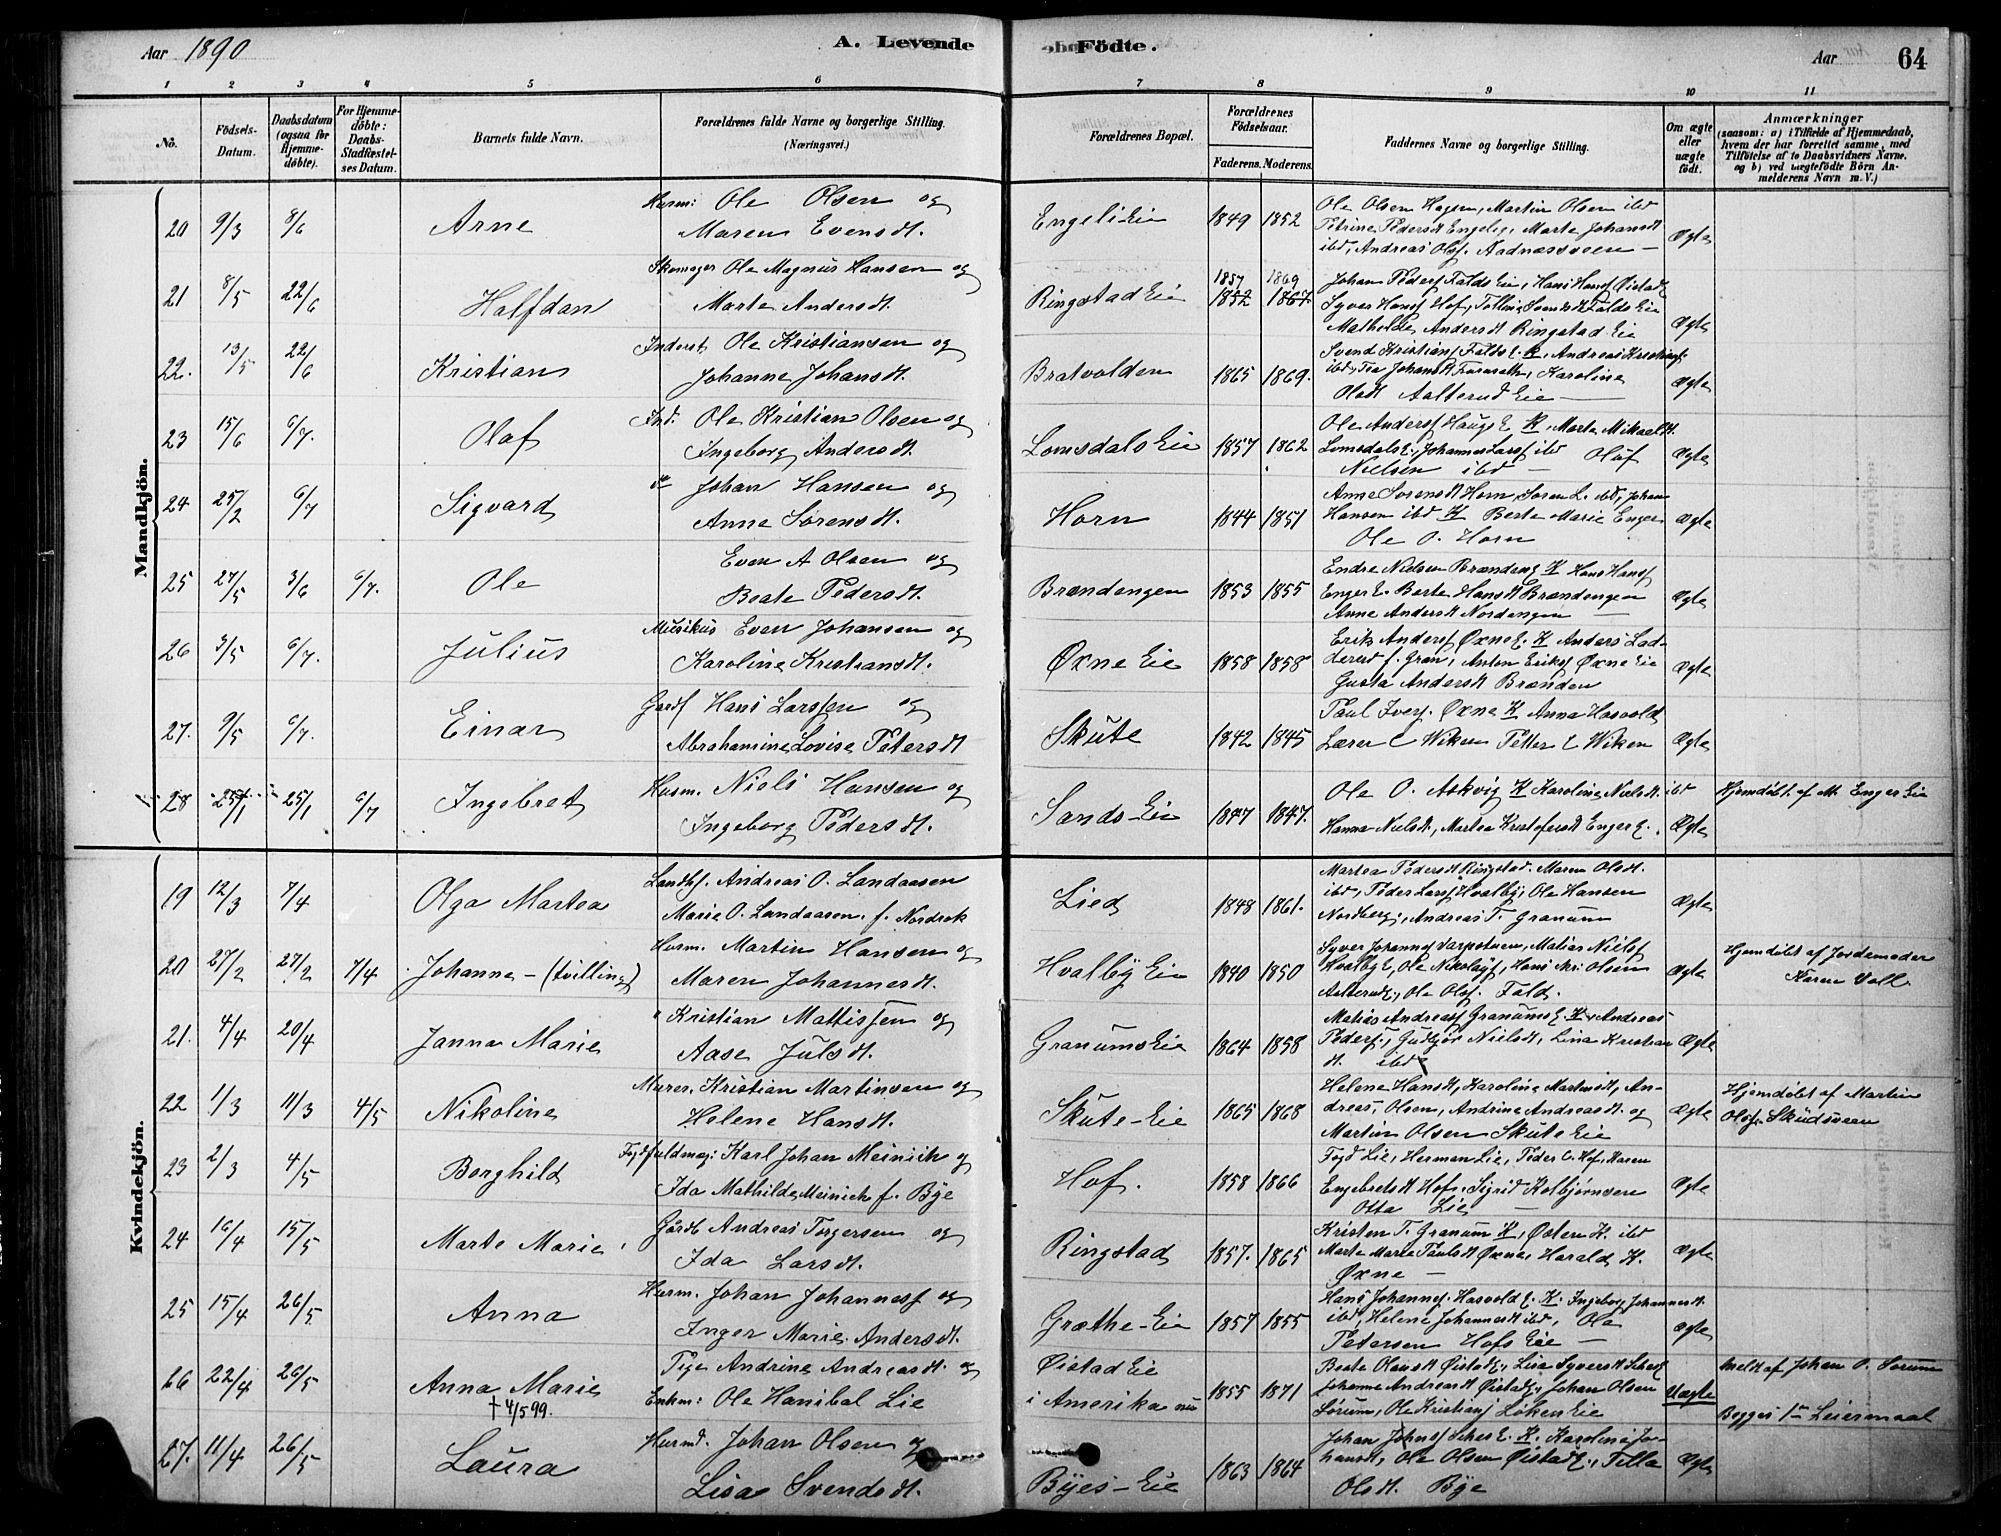 Aar 1890
A. Levende
Födte.
Aar
64
1 2 3 4 5 6 7 8 9 10 11
No.
Födsels-Datum.
Daabsdatum (ogsaa for Hjemme-döbte).
For Hjemme-döbte: Daabs-Stadfæstel-ses Datum.
Barnets fulde Navn.
Forældrenes fulde Navne og borgerlige Stilling. (Næringsvei.)
Forældrenes Bopæl.
Forældrenes Födselsaar.
Faderens. Moderens.
Faddernes Navne og borgerlige Stilling.
Om ægte eller uægte födt.
Anmærkninger
(saasom: a) i Tilfælde af Hjemmedaab, hvem der har forrettet samme, med Tilföielse af to Daabsvidners Navne, og b) ved uægtefödte Börn An-melderens Navn m. V.)
Mandkjön.
20 9/3 8/6 Arne Husm: Ole Olsen og
Maren Evensdt.
Engeli Eie 1849 1852
Ole Olsen Hagen, Martin Olsen ibd
Petrine Pedersdt Engelie, Marte Johansdt
ibd, Andreas Olsf. Aadnæssveen — Ægte
21 8/5 22/6 Halfdan Skomager Ole Magnus Hansen og
Marte Andersdt.
Ringstad Eie 1857 1869
1852 1867
Johan Pedersf Falds Eie, Hans Hansf Øistad
Syver Hansf Hof,
Mathilde Andersdt Ringstad Eie Ægte
22. 13/5 22/6 Kristian Inderst Ole Kristiansen og
Johanne Johansdt.
Bratvolden 1865 1869.
Svend Kristiansf Falds E. K, Andreas Kristiansf.
ibd, Tea Johansdt Karoline
Olsdt Aalterud Eie — Ægte
23 15/6 6/7. Olaf Ind. Ole Kristian Olsen og
Ingeborg Andersdt.
Lomsdals Eie 1857 1862
Ole Andersf Haugs E K, Marte Mikaeldt.
Lomsdals E., Johannes Larsf ibd Oluf
Nielsen ibd — Ægte
24 25/2 6/7 Sigvard do Johan Hansen og
Anne Sørensdt.
Horn 1844 1851
Anne Sørensdt Horn, Søren L. ibd, Johan
Hansen ibd K Berte Marie Enger
Ole O. Horn Ægte
25 27/5 3/6 6/7. Ole Even A Olsen og
Beate Pedersdt.
Brændengen 1853 1855
Endre Nielsen Brændeng K Hans Hansf
Enger E. Berte Hansdt Brændengen
Anne Andersdt Nordengen — Ægte
26 3/5 6/7. Julius Musikus Even Johansen og
Karoline Kristiansdt.
Øxne Eie 1858 1858
Erik Andersf Øxne E. K Anders Lad-
derud f. Gran, Anton Eriksf Øxne Eie
Gusta Andersdt Brænden Ægte
27. 9/5 6/7. Einar Gardf Hans Larssen og
Abrahamine Lovise Petersdt
Skute 1842 1845
Paul Iversf. Øxne K Anna Hasvold
Lærer C Wiken Petter C Wiken Ægte
28 25/1 25/1 6/7 Ingebret Husm. Niels Hansen og
Ingeborg Pedersdt.
Sands-Eie 1847 1847.
Ole O. Askvig K Karoline Nielsdt. ibd
Hanna Nielsdt, Martea Kristofersdt Enger E. Ægte
Hjemdöbt. af M. Enger Eie
Kvindekjön.
19 12/3 7/4 Olga Martea Landhf. Andreas O. Landaasen
Marie O. Landaasen. f. Nordrek
Lied 1848 1861.
Martea Pedersdt Ringstad. Maren Olsdt.
ibd, Peder Larsf Hvalby, Ole Hansen
Nordberg, Andreas T. Granum Ægte
20 27/2 27/2 7/4 Johanne – (tvilling) Husm. Martin Hansen og
Maren Johannesdt.
Hvalby Eie 1840 1850
Syver Johannesf Matias Nielsf
Hvalby E, Ole Nikolaif, Hans Olsen
Ole Olsf. Fald. Ægte
Hjemdöbt af Jordemoder
Karen Voll.
21. 4/4 20/4 Janna Marie " Kristian Mattissen og
Aase Julsdt.
Granums Eie 1864 1858
Matias Andreasf Granums E. K, Andreas
Pedersf, Gudbjør Nielsdt, Lina Kristians
dt. ibd Ægte
22 1/3 11/3 4/5 Nikoline Murer. Kristian Martinsen og
Helene Hansdt.
Skute-Eie 1865 1868
Helene Hansdt, Karoline Martinsdt, An-
dreas, Olsen, Andrine Andreasdt. og
Martin Olsen Skute Eie Ægte
Hjemdöbt af Martin
Olsf. Skudsveen
23 2/3 4/5 Borghild Fogdfuldmæg: Karl Johan Meinich og
Ida Mathilde Meinich f. Bye
Hof. 1858 1866
Fogd Lie, Herman Lie, Peder C. Hof, Karen
Engebretsdt Hof, Sigrid Kolbjørnsen
Otta Lie — Ægte
24 16/4 15/5 Marte Marie Gårdb Andreas Torgersen og
Ida Larsdt.
Ringstad 1857. 1865
Kristen T. Granum K, Østen K. ibd
Marte Marie Paulsdt Øxne, Harald K.
Øxne — Ægte
25 15/4 26/5 Anna Husm. Johan Johannesf og
Inger Marie Andersdt.
Græthe-Eie 1857 1855
Hans Johannesf. Hasvold E. K. Ingeborg Johannesdt.
ibd, Helene Johannesdt ibd, Ole
Petersen Hofs Eie — Ægte
26 22/4 26/5 Anna Marie
† 4/5 99.
Pige Andrine Andreasdt. og
Enkm: Ole Hanibal Lie
Øistad Eie
i Amerika nu 1855 1871
Beate Olausdt Øistad E., Lisa Syversdt
Johanne Andreasdt Øistad E., Johan Olsen
Sørum, Ole Kristiansf Løken Eie Uægte
Meldt af Johan O. Sørum
Begges 1ste Leiermaal
27. 11/4 26/5 Laura Husmd. Johan Olsen og
Lisa Svendsdt.
Byes-Eie 1863 1864
Johan Johnsf E. K. Karoline Jo-
hansdt, Ole Olsen Øistad E., Tilla
Olsdt. Bye Ægte